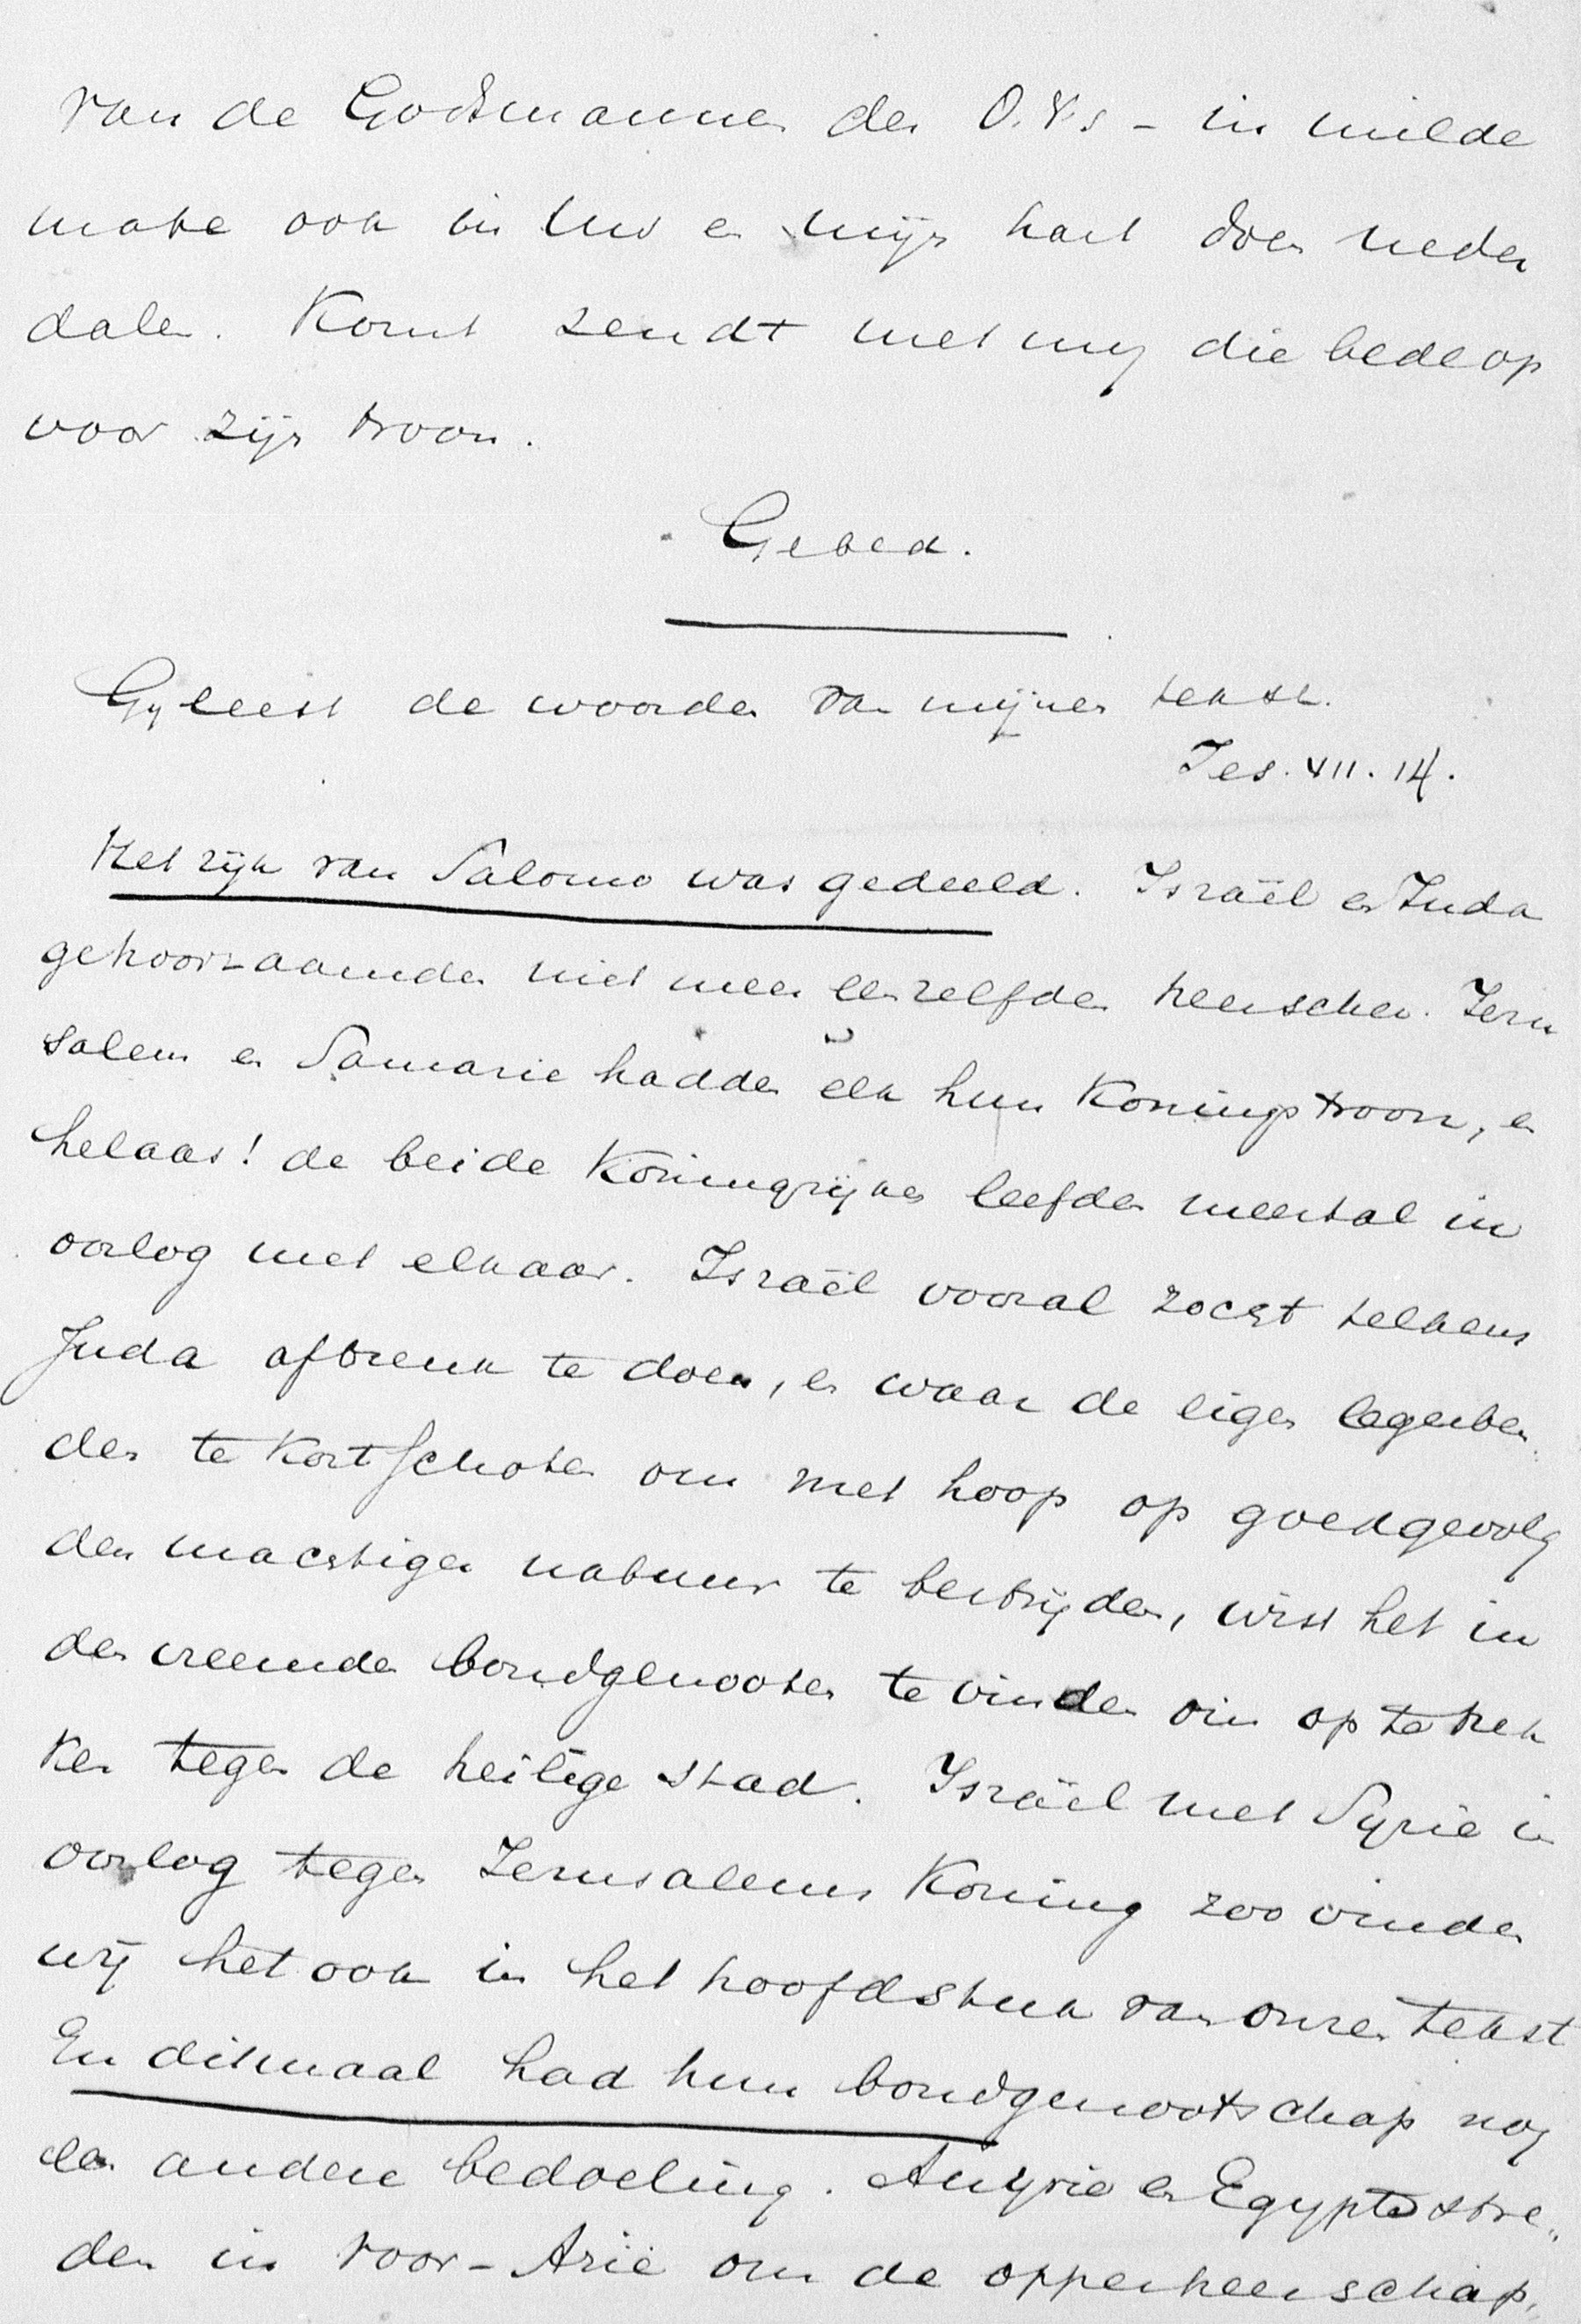 van de Godsmannen des O. V.s - in milde
mate ook in Uw en mijn hart doen neder
dalen. Komt zendt met mij die bede op
voor zijn troon.
Gebed.
Gij leest de woorden van mijnen tekst.
Jes. VII. 14.
Het rijk van Salomo was gedeeld. Israël en Juda
gehoorzaamden niet meer eenzelfden heerscher. Jeru
salem en Samarie hadden elk hun Koningstroon, en
helaas! de beide Koningrijken leefden meestal in
oorlog met elkaar. Israël vooral zocht telkens
Juda afbreuk te doen, en waar de eigen legerben
den te kort schoten om met hoop op goed gevolg
den machtigen nabuur te bestrijden, wist het in
den vreemde bondgenooten te vinden om op te trek
ken tegen de heilige stad. Israël met Syrië in
oorlog tegen Jerusalems Koning zoo vinden
wij het ook in het hoofdstuk van onzen tekst
En ditmaal had hun bondgenootschap nog
een andere bedoeling. Assyrie en Egypte stre„
den in Voor-Azië om de opperheerschap,